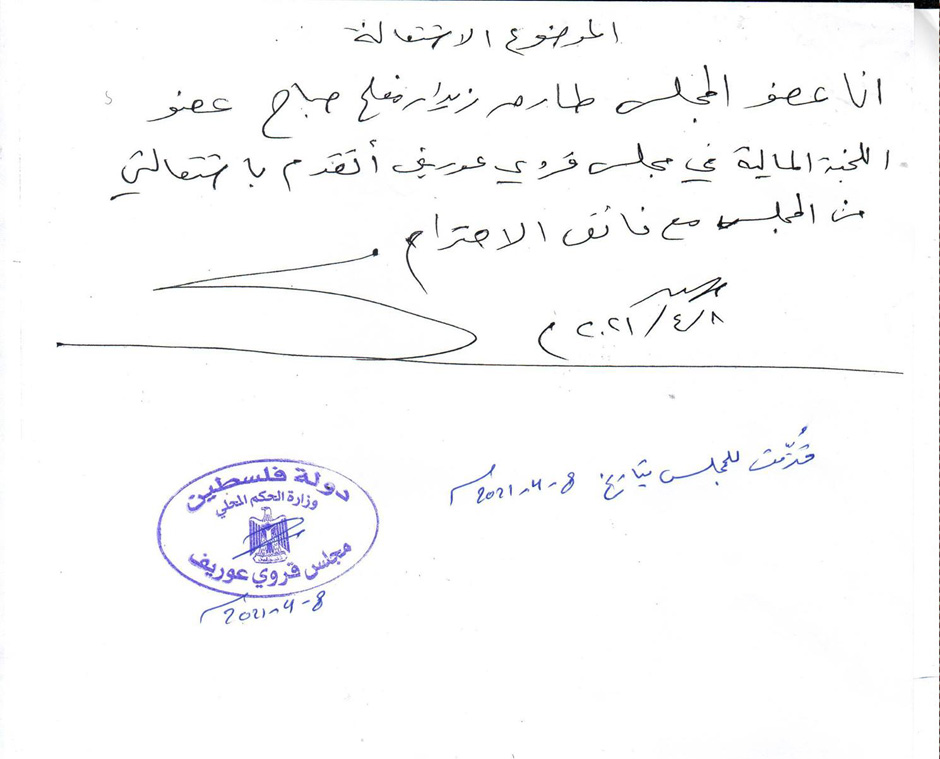 الموضوع الاستقالة
انا عضو المجلس طارق زيدان مفلح صباح عضو
اللجنة المالية في مجلس قروي عوريف أتقدم باستقالتي
من المجلس مع فائق الاحترام
٢٠٢١/٤/٨ م
قُدّمت للمجلس بتاريخ 8-4-2021 م
دولة فلسطين
وزارة الحكم المحلي
مجلس قروي عوريف
8-4-2021 م